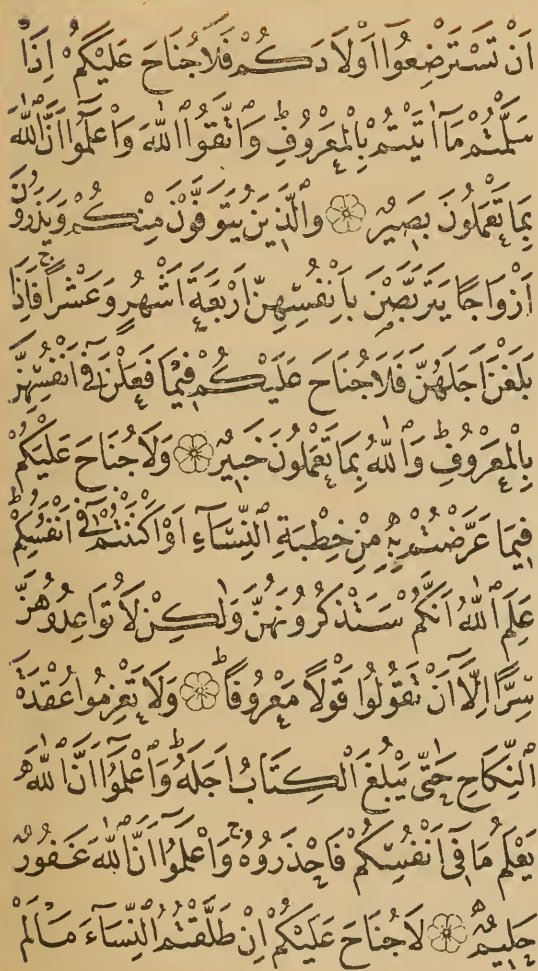 اَنْ تَسْتَرْضِعُوٓا اَوْلَادَكُمْ فَلَا جُنَاحَ عَلَيْكُمْ اِذَا
سَلَّمْتُمْ مَآ اٰتَيْتُمْ بِالْمَعْرُوفِ ۜ وَاتَّقُوا اللّٰهَ وَاعْلَمُوٓا اَنَّ اللّٰهَ
بِمَا تَعْمَلُونَ بَصِيرٌ ۝ وَالَّذِينَ يُتَوَفَّوْنَ مِنْكُمْ وَيَذَرُونَ
اَزْوَاجًا يَتَرَبَّصْنَ بِاَنْفُسِهِنَّ اَرْبَعَةَ اَشْهُرٍ وَعَشْرًا ۚ فَاِذَا
بَلَغْنَ اَجَلَهُنَّ فَلَا جُنَاحَ عَلَيْكُمْ فِيمَا فَعَلْنَ فٓى اَنْفُسِهِنَّ
بِالْمَعْرُوفِ ۜ وَاللّٰهُ بِمَا تَعْمَلُونَ خَبِيرٌ ۝ وَلَا جُنَاحَ عَلَيْكُمْ
فِيمَا عَرَّضْتُمْ بِهٖ مِنْ خِطْبَةِ النِّسَآءِ اَوْ اَكْنَنْتُمْ فٓى اَنْفُسِكُمْ ۜ
عَلِمَ اللّٰهُ اَنَّكُمْ سَتَذْكُرُونَهُنَّ وَلٰكِنْ لَا تُوَاعِدُوهُنَّ
سِرًّا اِلَّآ اَنْ تَقُولُوا قَوْلًا مَعْرُوفًا ۜ ۝ وَلَا تَعْزِمُوا عُقْدَةَ
النِّكَاحِ حَتّٰى يَبْلُغَ الْكِتَابُ اَجَلَهُ ۜ وَاعْلَمُوٓا اَنَّ اللّٰهَ
يَعْلَمُ مَا فٓى اَنْفُسِكُمْ فَاحْذَرُوهُ ۚ وَاعْلَمُوٓا اَنَّ اللّٰهَ غَفُورٌ
حَلِيمٌ ۝ لَا جُنَاحَ عَلَيْكُمْ اِنْ طَلَّقْتُمُ النِّسَآءَ مَا لَمْ